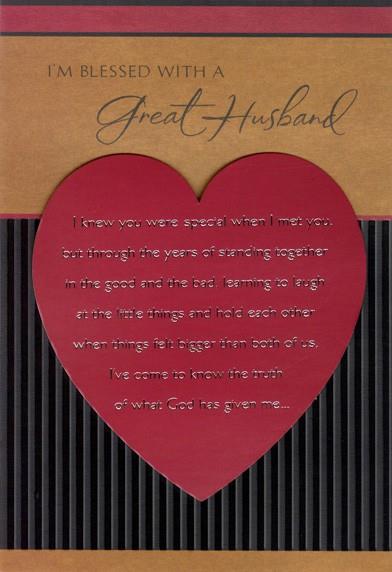 I'M BLESSED WITH A
Great Husband
I knew you were special when I met you,
but through the years of standing together
in the good and the bad, learning to laugh
at the little things and hold each other
when things felt bigger than both of us,
I've come to know the truth
of what God has given me...